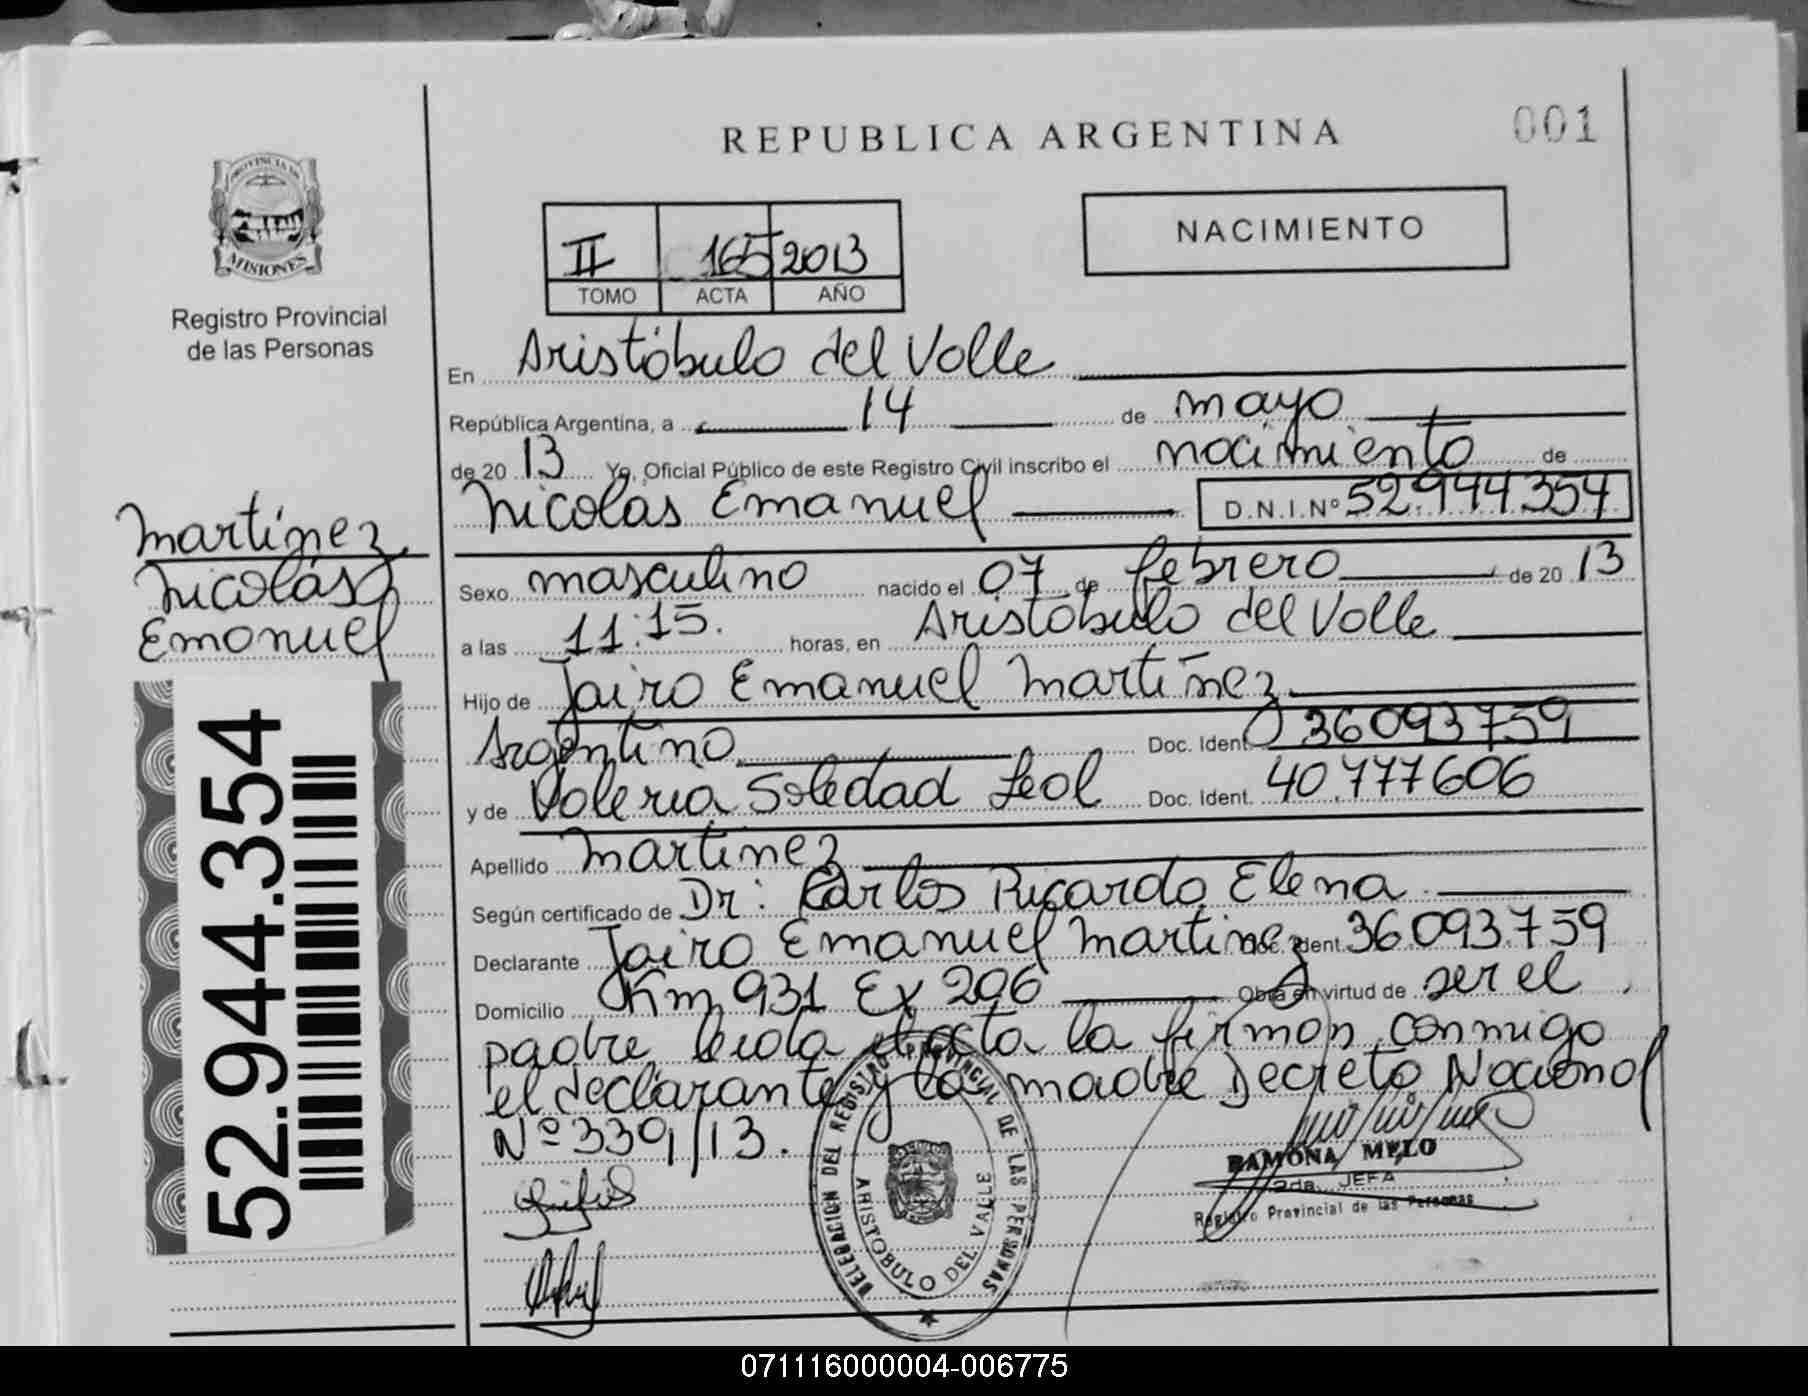 REPUBLICA ARGENTINA
001
PROVINCIA DE
MISIONES
Registro Provincial
de las Personas
II 165 2013
TOMO ACTA AÑO
NACIMIENTO
En Aristóbulo del Valle
República Argentina, a 14 de mayo
de 20 13 Yo, Oficial Público de este Registro Civil inscribo el nacimiento de
Nicolas Emanuel D.N.I.Nº 52.944.354
Martínez
Nicolás
Emanuel
52.944.354
Sexo masculino nacido el 07 de febrero de 20 13
a las 11:15. horas, en Aristóbulo del Valle
Hijo de Jairo Emanuel Martínez
Argentino Doc. Ident. 36093759
y de Valeria Soledad Leal Doc. Ident. 40.777606
Apellido Martinez
Según certificado de Dr: Carlos Ricardo Elena
Declarante Jairo Emanuel Martinez Doc. Ident. 36.093.759
Domicilio Km 931 Ex 206 Obra en virtud de ser el
padre leida el acta la firman conmigo
el declarante y la madre Decreto Nacional
Nº 339/13.
DELEGACION DEL REGISTRO PROVINCIAL DE LAS PERSONAS
ARISTOBULO DEL VALLE
RAMONA MELO
2da. JEFA
Registro Provincial de las Personas
071116000004-006775